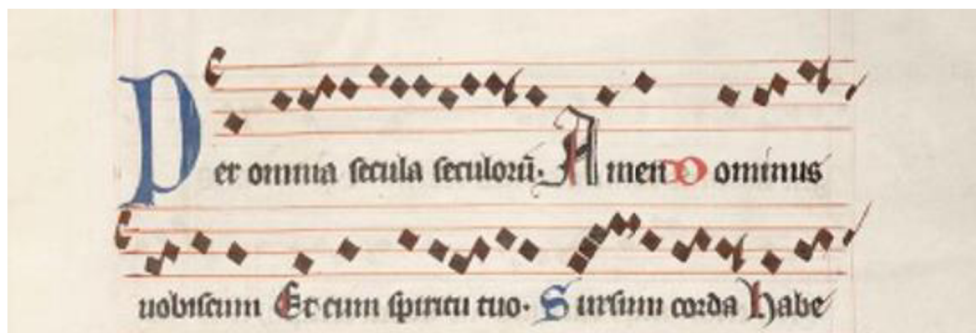 Per omnia secula seculorū. Amen Dominus
uobiscum Et cum spiritu tuo. Sursum corda habe